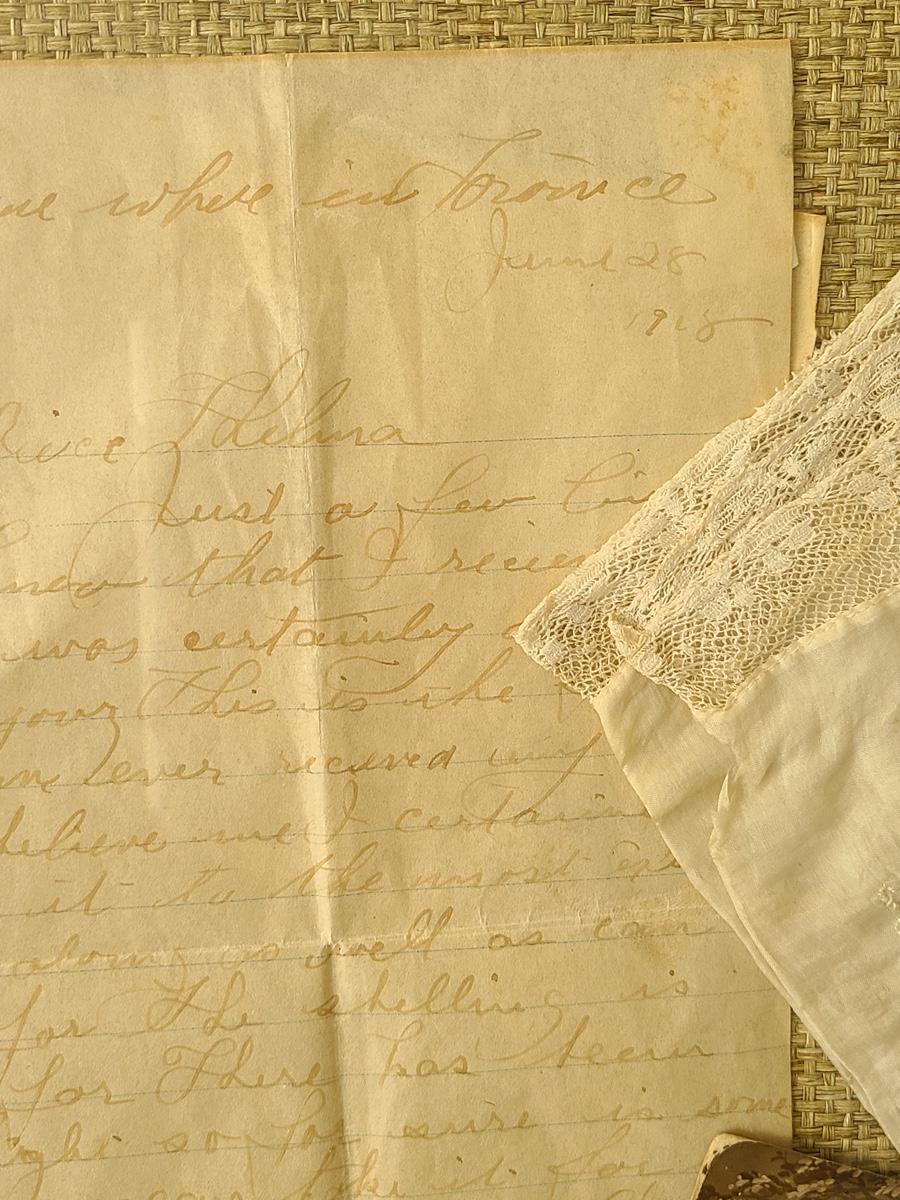 me where in France
June 28
1918
Niece Thelma
Just a few
know that I
was certainly
your This is the
ever received
believe me I certain
it to the most
along as well as can
for The shelling is
for There has been
ight so far sure is some
take it for